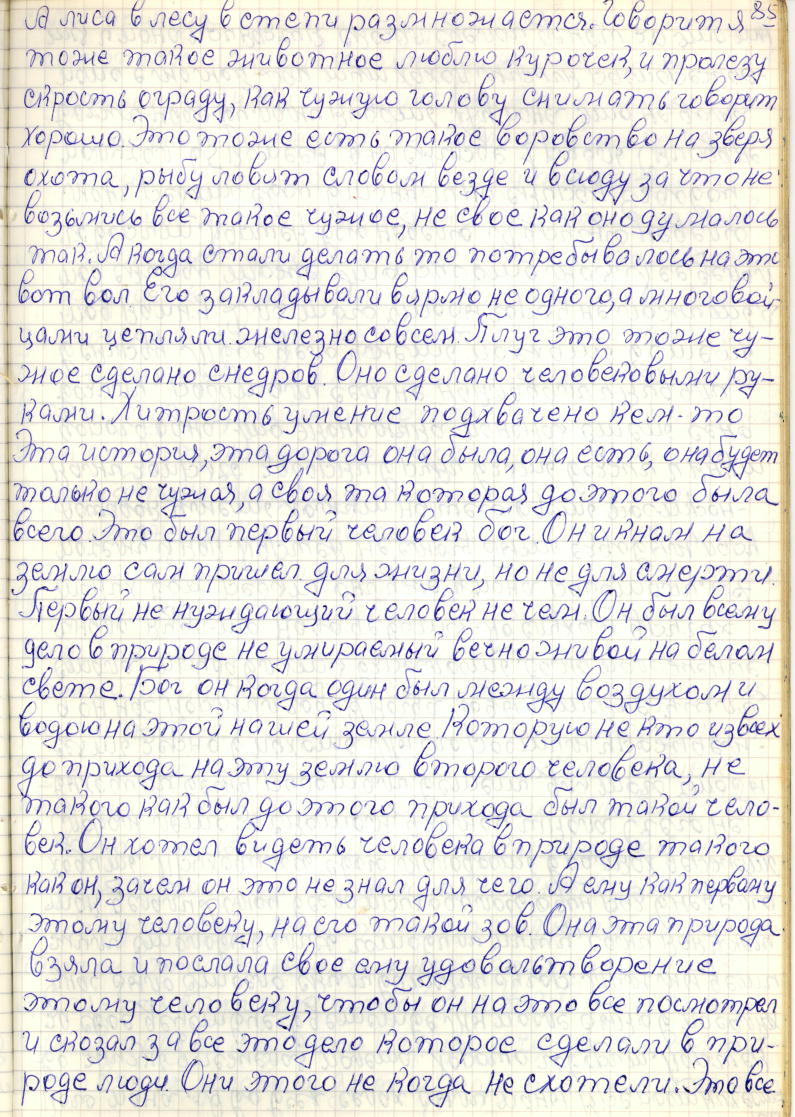 85
А лиса в лесу в степи размножается. Говорит я
тоже такое животное люблю курочек, и пролезу
скрость ограду, как чужую голову снимать говорит
хорошо. Это тоже есть такое воровство на зверя
охота, рыбу ловит словом везде и всюду за что не
возьмись все такое чужое, не свое как оно думалось
так. А когда стали делать то потребывалось на это
вот вол Его закладывали в ярмо не одного, а много вой-
цами цепляли. железно совсем. Плуг это тоже чу-
жое сделано снедров. Оно сделано человековыми ру-
ками. Хитрость умение подхвачено кем-то
Эта история, эта дорога она была, она есть, она будет
только не чужая, а своя та которая до этого была
всего. Это был первый человек бог. Он и к нам на
землю сам пришел для жизни, но не для смерти.
Первый не нуждающий человек не чем. Он был всему
дело в природе не умираемый вечноживой на белом
свете. Бог он когда один был между воздухом и
водою на этой нашей земле. Которую не кто из всех
до прихода на эту землю второго человека, не
такого как был до этого прихода был такой чело-
век. Он хотел видеть человека в природе такого
как он, зачем он это не знал для чего. А ему как первому
этому человеку, на его такой зов. Она эта природа
взяла и послала свое ему удовольтворение
этому человеку, чтобы он на это все посмотрел
и сказал за все это дело которое сделали в при-
роде люди Они этого не когда не схотели. Это все